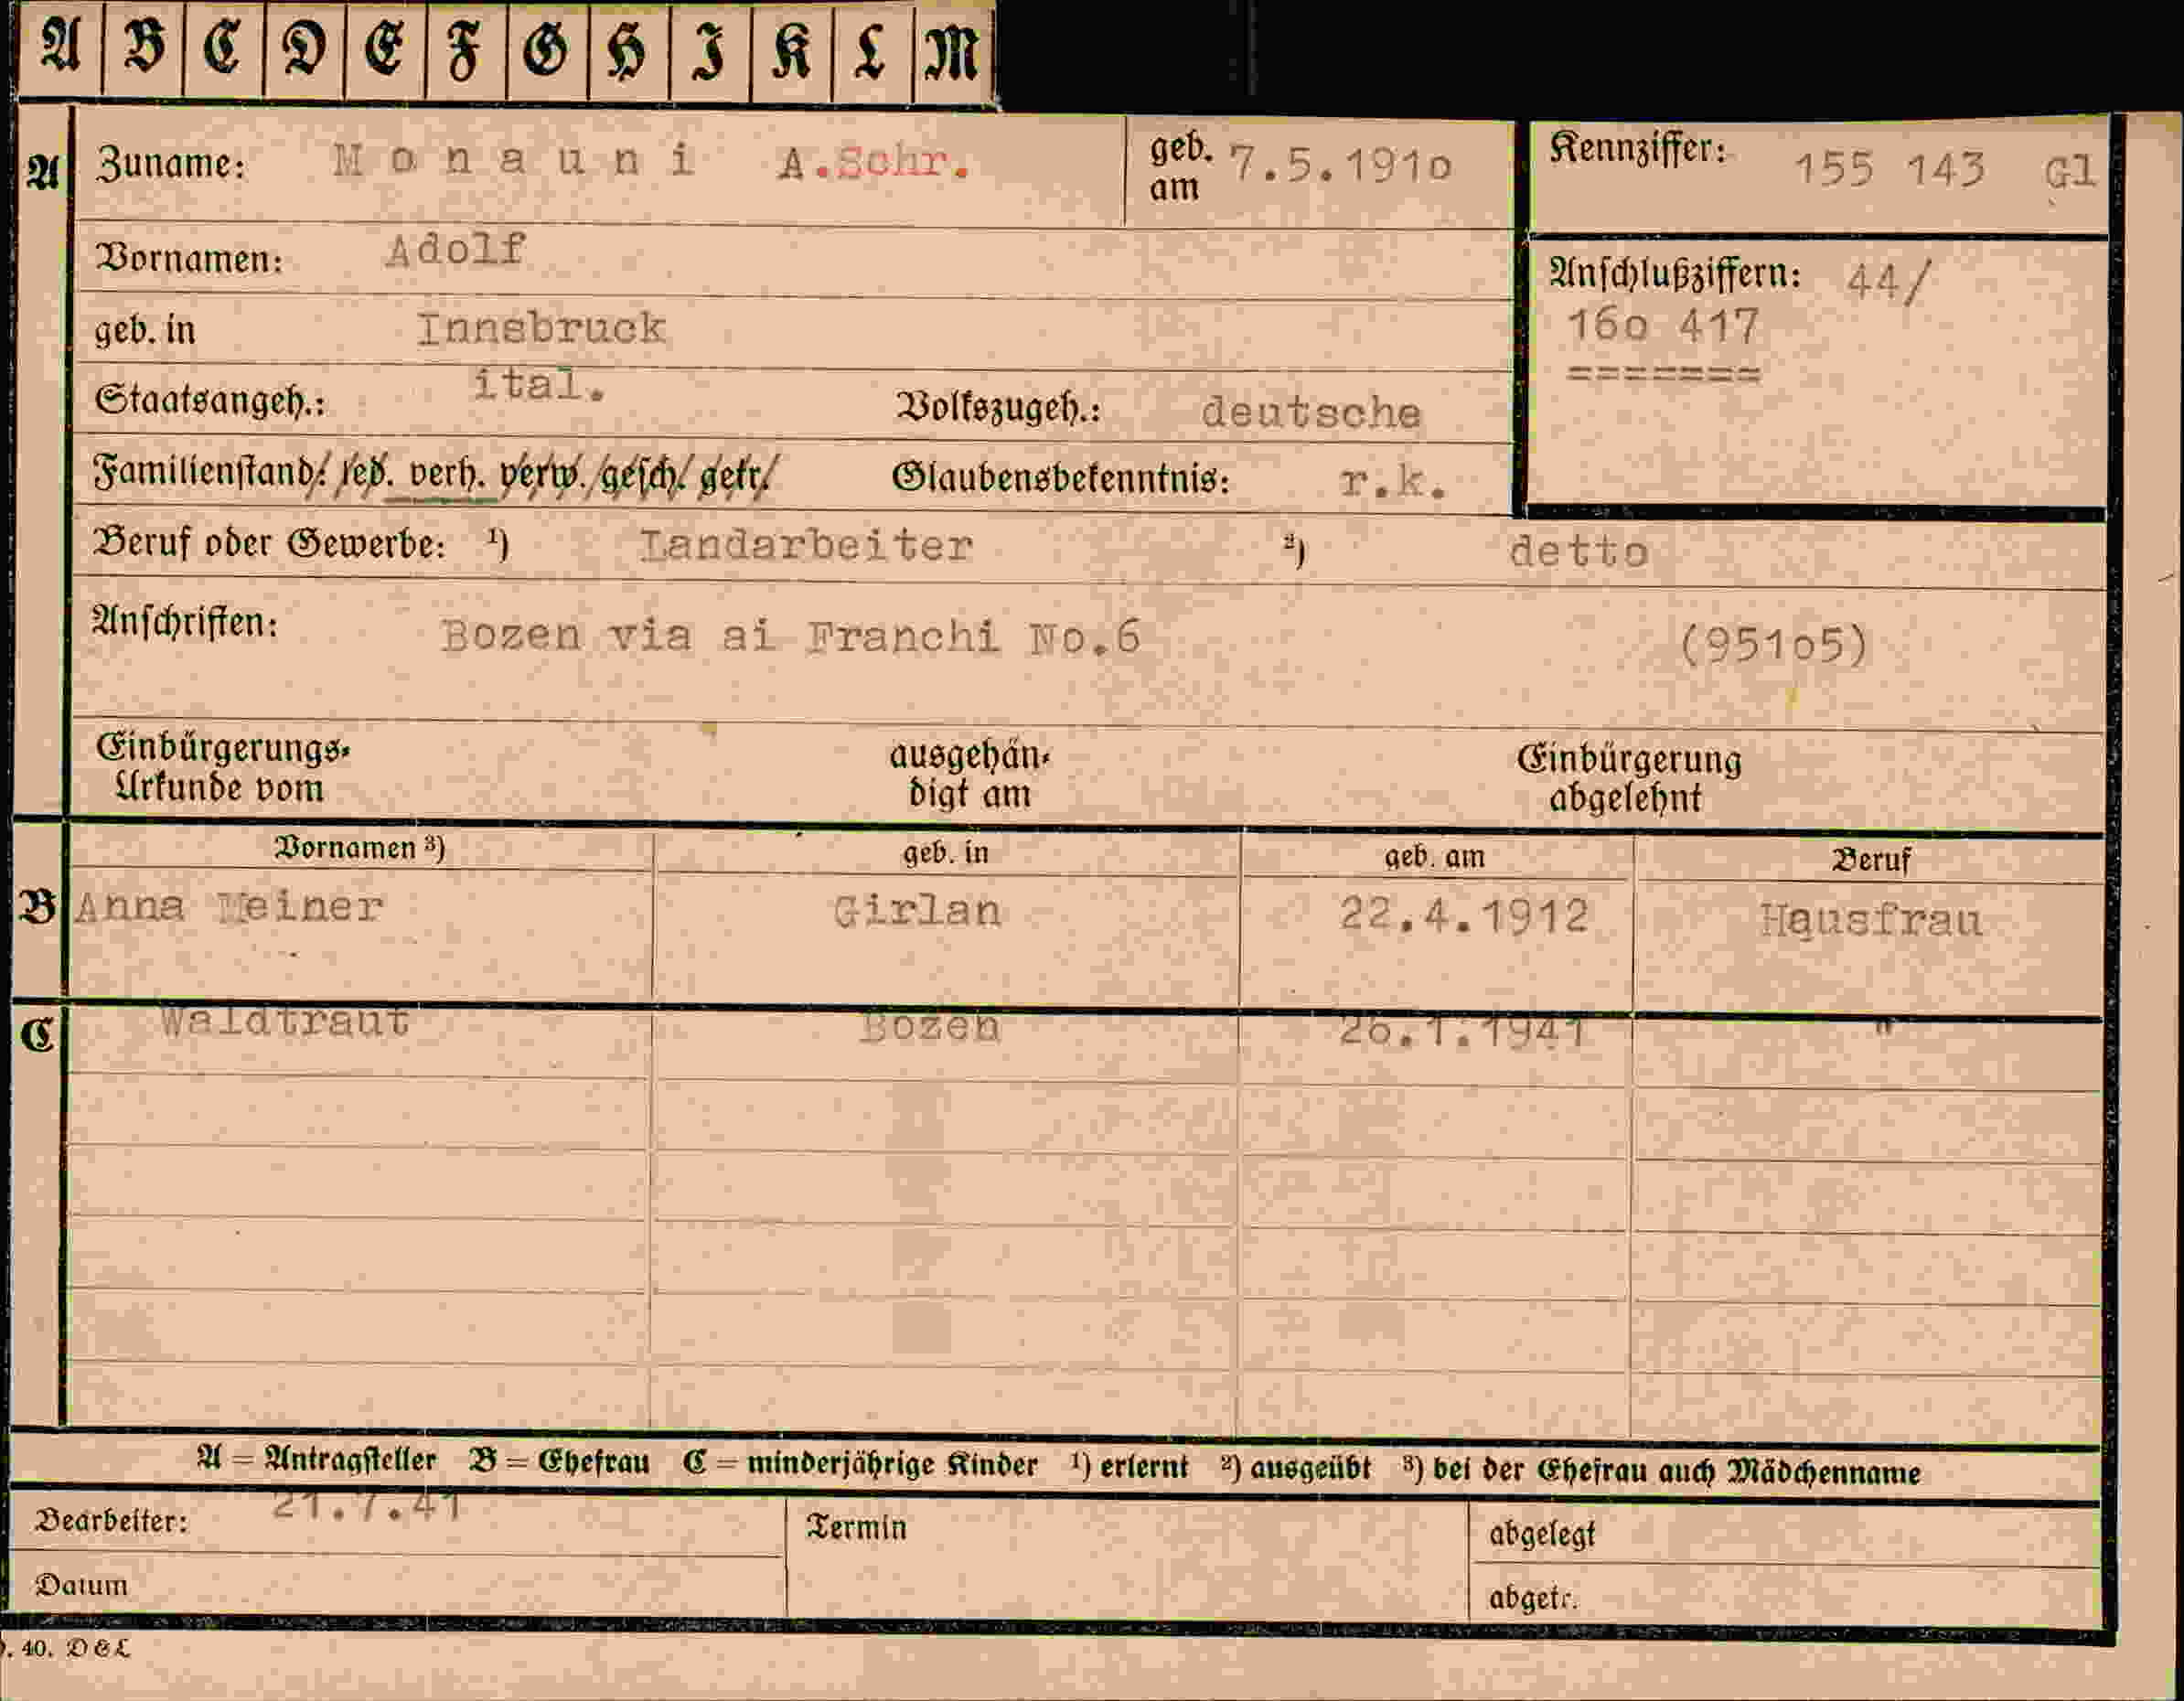 A B C D E F G H I K L M
A Zuname: Monauni A.Schr. geb. am 7.5.1910 Kennziffer: 155 143 Gl
Vornamen: Adolf
Anschlußziffern: 44/
geb. in Innsbruck
16o 417
=======
Staatsangeh.: ital. Volkszugeh.: deutsche
Familienstand: led. verh. verw. gesch. getr. Glaubensbekenntnis: r.k.
Beruf oder Gewerbe: ¹) Landarbeiter ²) detto
Anschriften: Bozen via ai Franchi No.6 (951o5)
Einbürgerungs- ausgehän- Einbürgerung
Urkunde vom digt am abgelehnt
Vornamen ³) geb. in geb. am Beruf
B Anna Girlan 22.4.1912 Hausfrau
C Waldtraut Bozen 26.1.1941 "
A = Antragsteller B = Ehefrau C = minderjährige Kinder ¹) erlernt ²) ausgeübt ³) bei der Ehefrau auch Mädchenname
Bearbeiter: 21.7.41 Termin abgelegt
Datum abgetr.
. 40. D & L